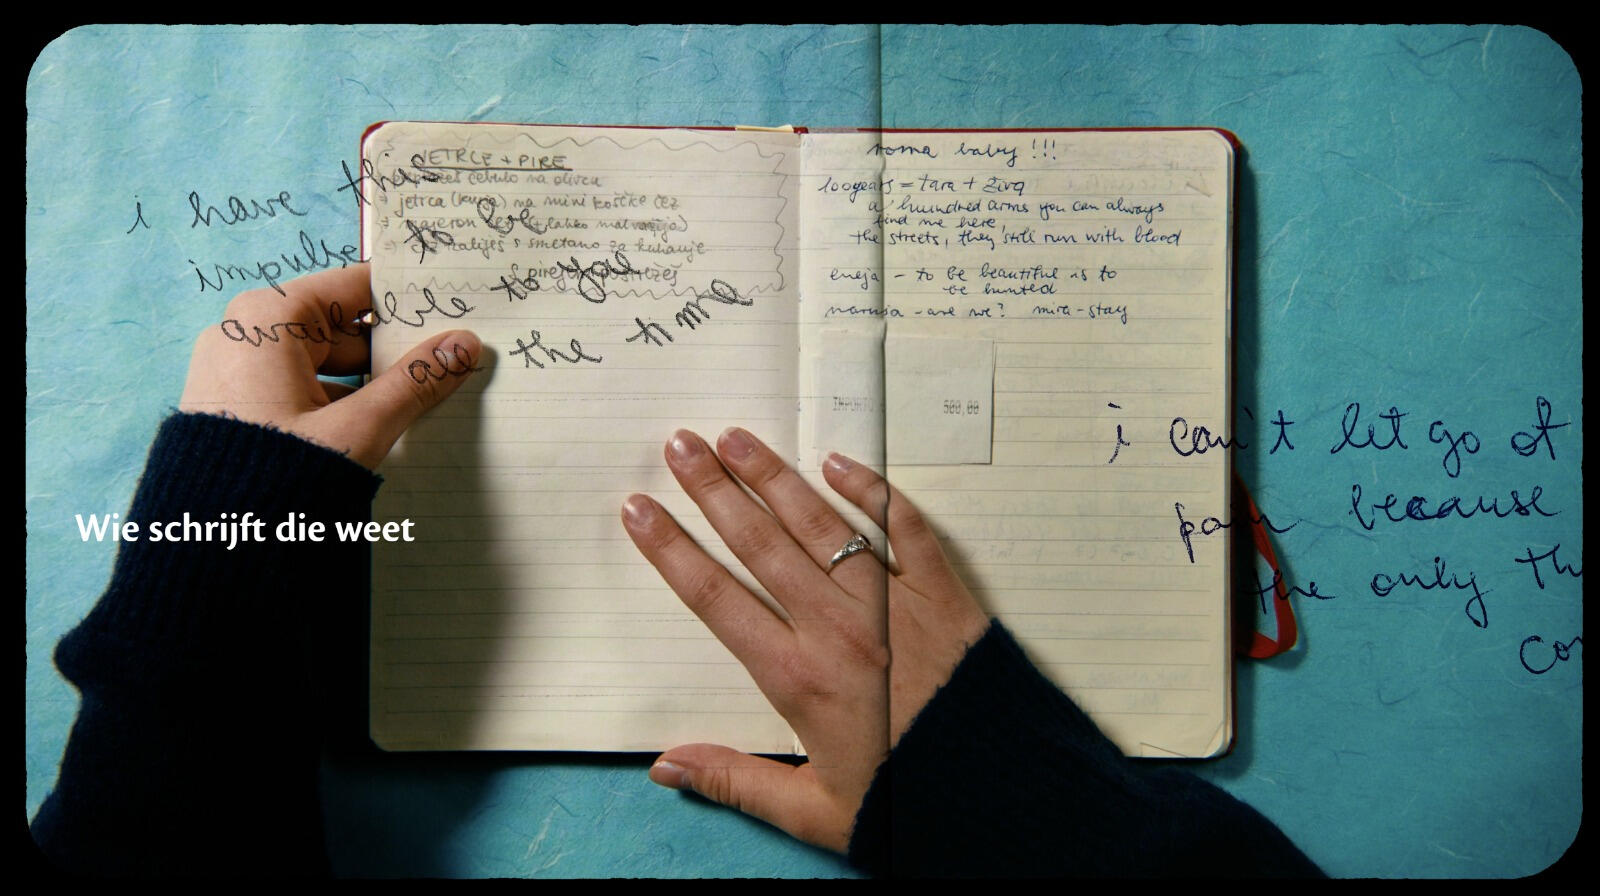 i have this
impulse to be
available to you
all the time
JETRCE + PIRE
čebulo na olivcu
jetrca (kurja) na mini koščke čez
(+ lahko malvazija)
zaliješ s smetano za kuhanje
S pirejem postrežeš
roma baby !!!
100gears = tara + živa
a hundred arms you can always
find me here,
the streets, they still run with blood
eneja - to be beautiful is to
be hunted
narusa - are we? mira - stay
IMPORTO 500,00
i can't let go of
pain because
the only th
Wie schrijft die weet
co